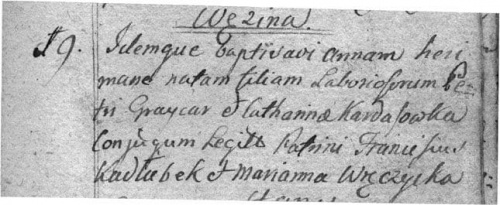 Węzina.
19. Idemque baptisavi Annam heri
mane natam filiam Laboriosorum Pe-
tri Graycar et Catharinæ Kardasowka
Conjugum Legitt Patrini Francisus
Kadłubek et Marianna Węzycka